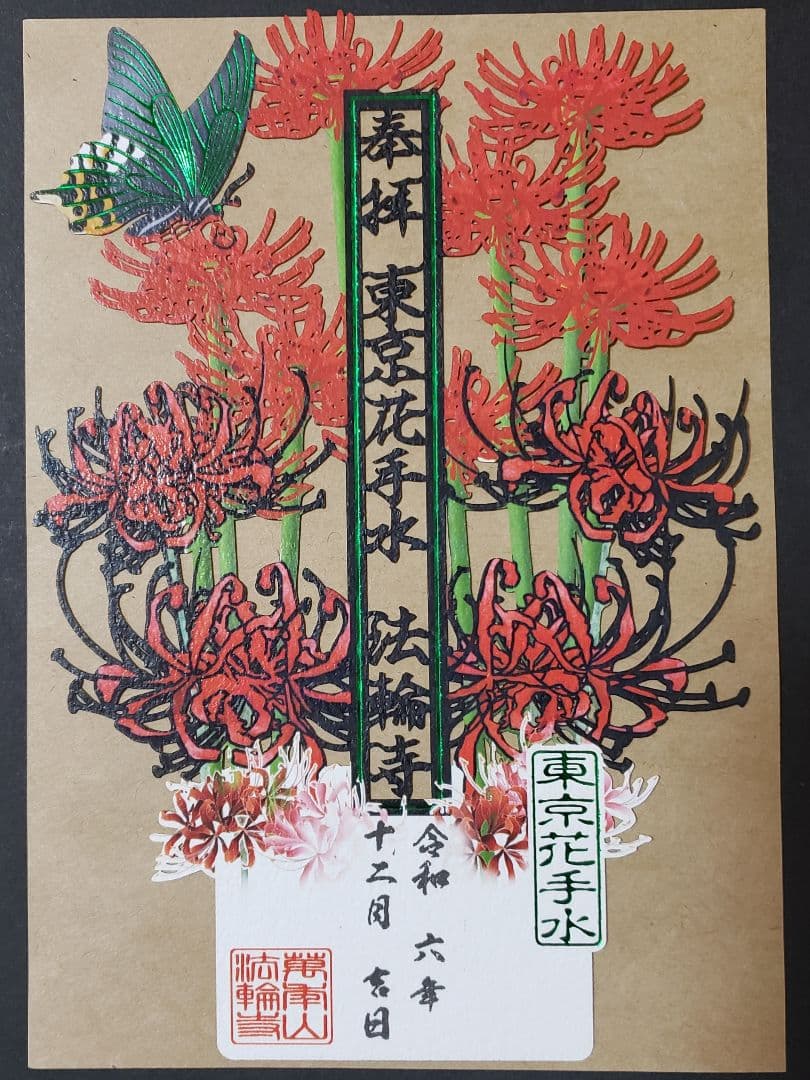 奉拝 東京花手水 法輪寺
東京花手水
令和 六年
十二月 吉日
萬年山
法輪寺